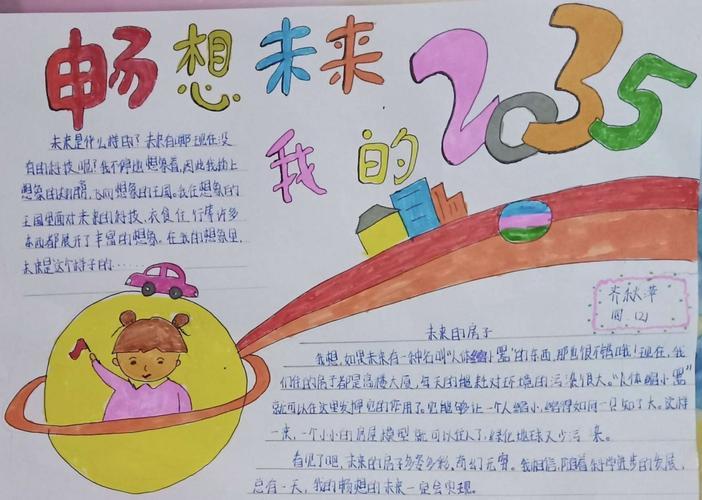 畅想未来
我的 2035
未来是什么样的？未来有哪现在没
有的科技呢？我不停地想象着，因此我插上
想象的翅膀，飞向想象的王国。我在想象的
王国里面对未来的科技、衣食住行等许多
东西都展开了丰富的想象。在我的想象里，
未来是这个样子的……
齐秋萍
四（2）
未来的房子
我想，如果未来有一种名叫“人体缩小器”的东西，那也很不错哦！现在，我
们住的房子都是高楼大厦，与天的 对环境的污染很大。“人体缩小器”
就可以在这里发挥它的作用了。它能够让一个人缩小，缩得如同一只 大。这样
一来，一个小小的房屋模型就可以住人了，绿化地球又少污染。
看见了吧，未来的房子多姿多彩，奇幻无穷。我相信，随着科学进步的发展，
总有一天，我的畅想的未来一定会实现。